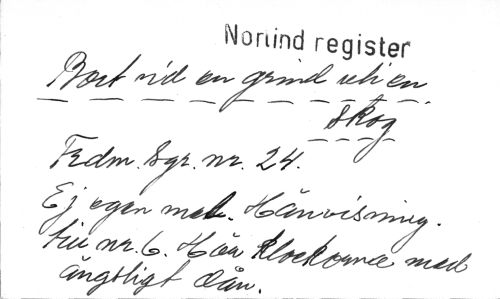 Norlind register
Bort vid en grind uti en
skog
Fredm. Sgr. nr. 24.
Ej egen mel. Hänvisning.
till nr. 6. Hör klockorna med
ängsligt dån.